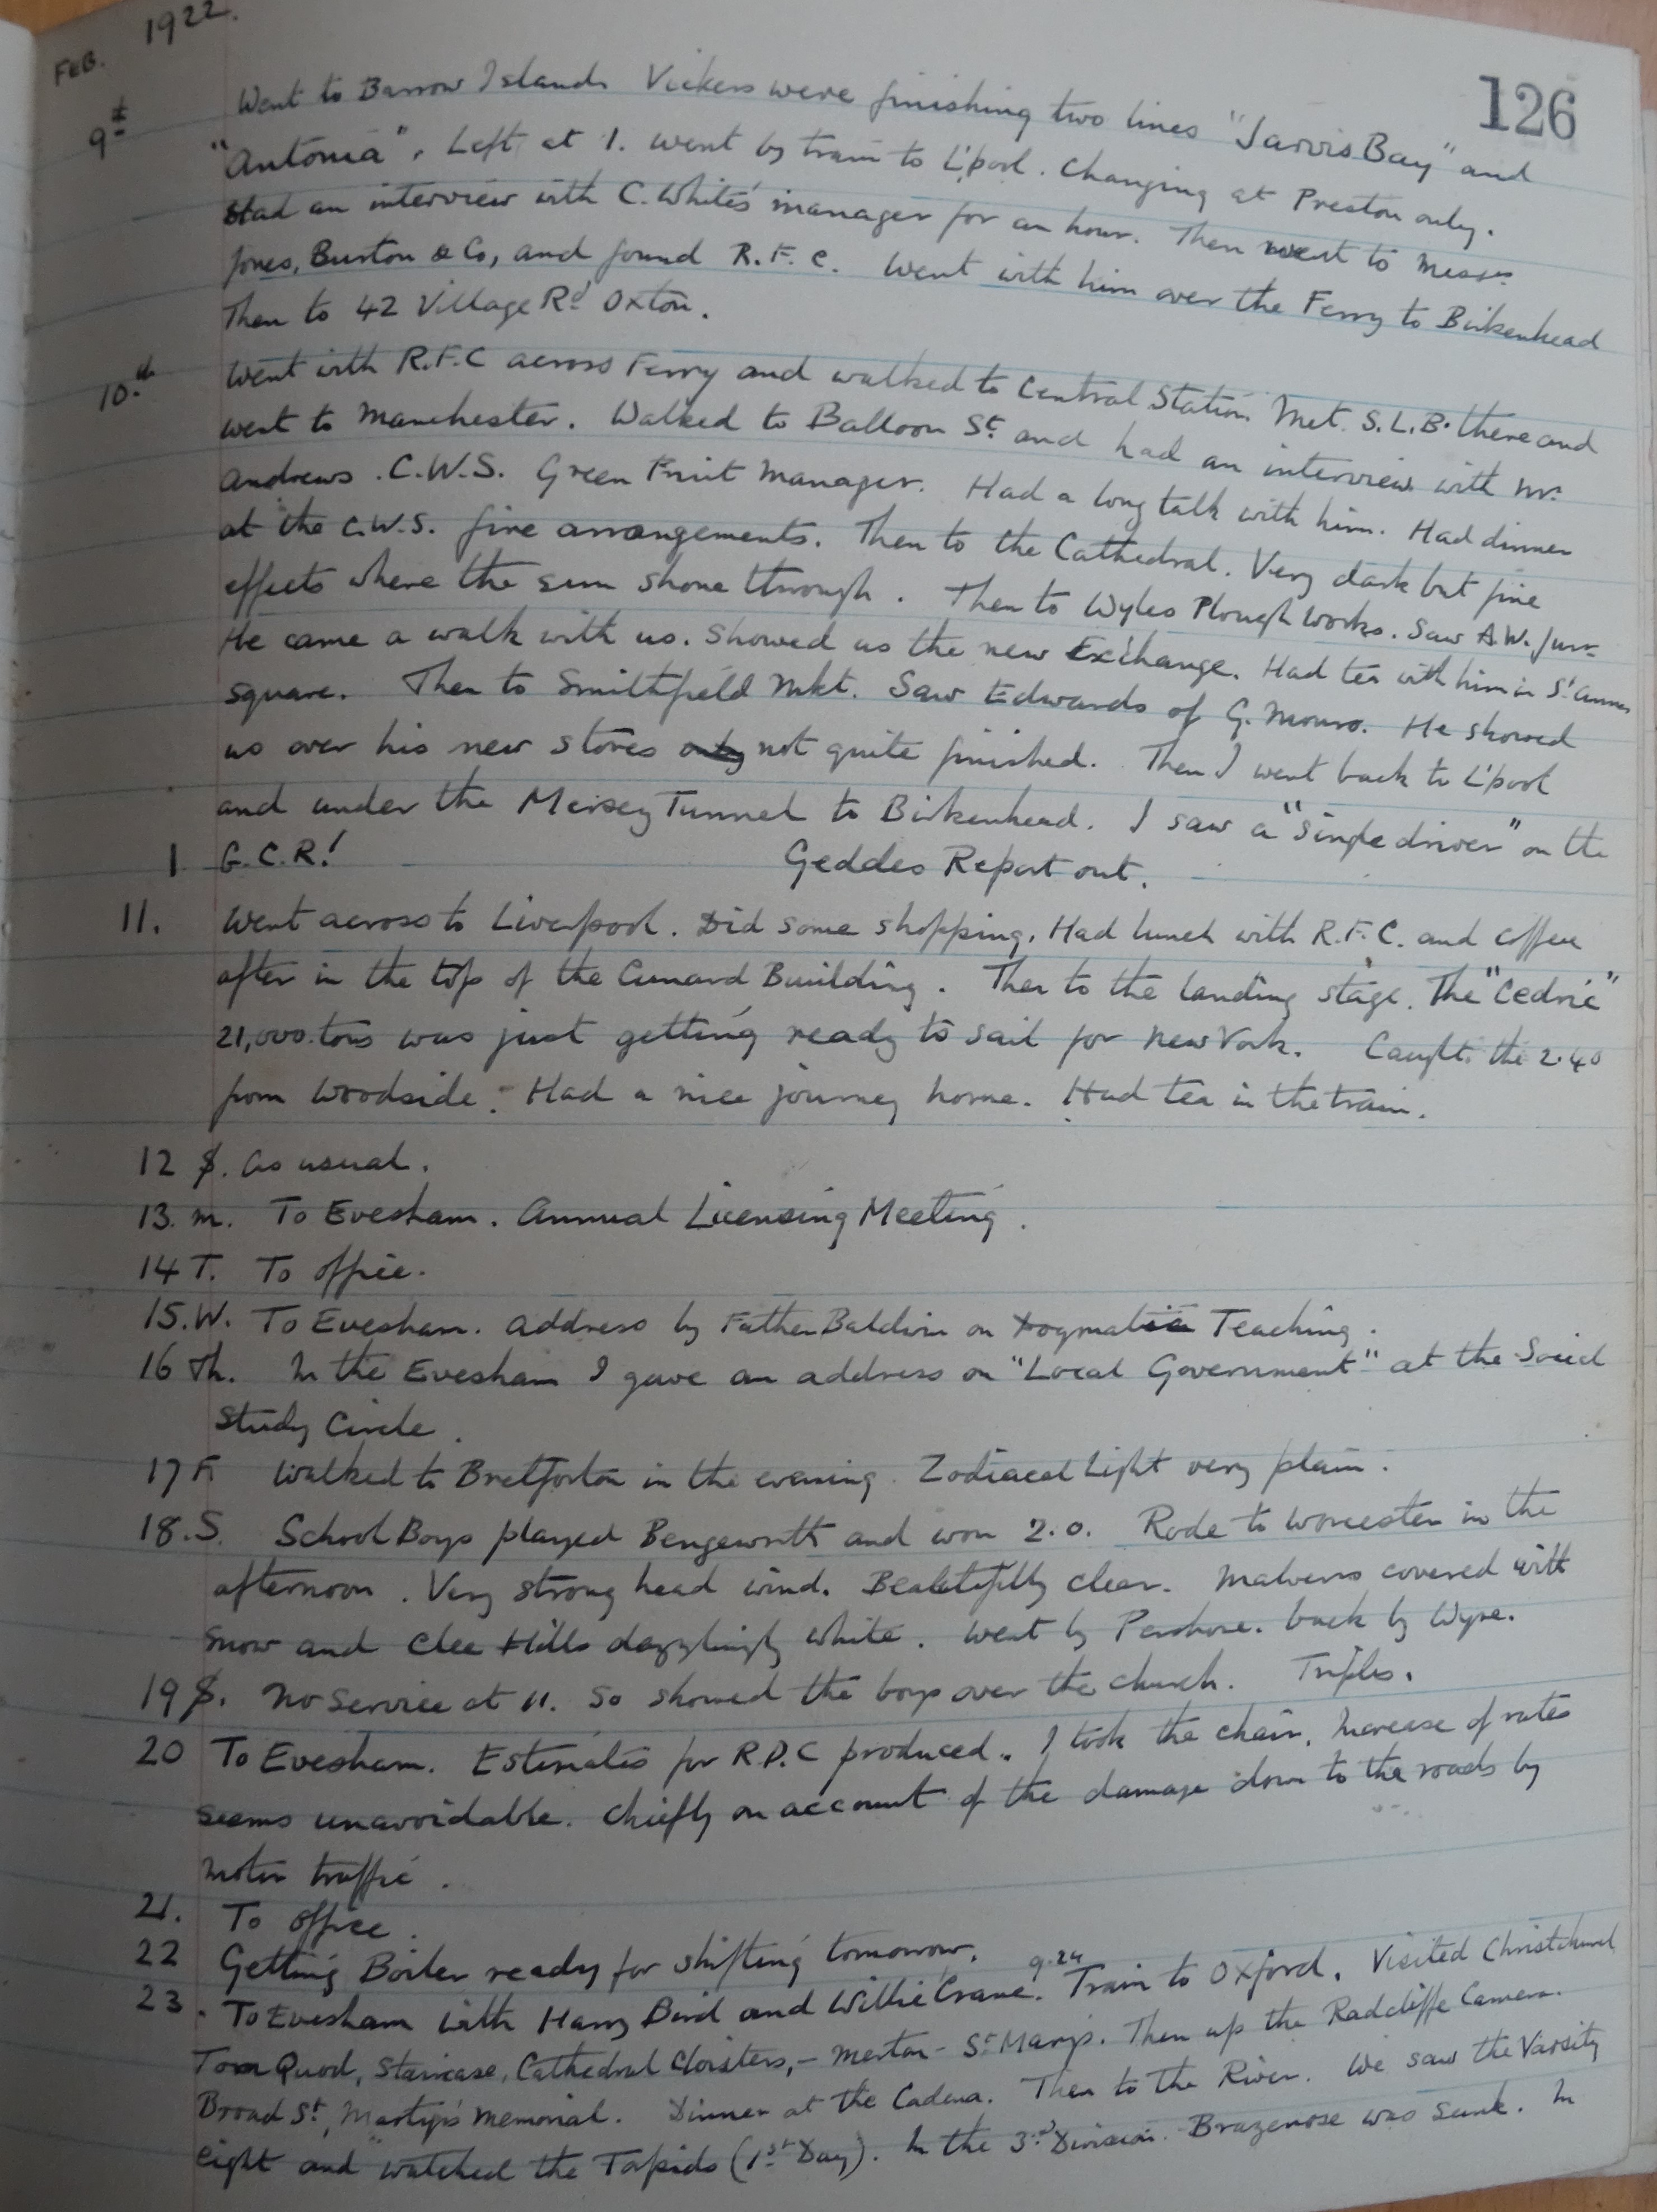 FEB. 1922.
126
9th Went to Barrow Island. Vickers were finishing two lines "Jarvis Bay" and
"Antonia". Left at 1. went by train to L'pool. Changing at Preston only.
Had an interview with C. White's manager for an hour. Then went to Messrs
Jones, Burton & Co, and found R.F.C. Went with him over the Ferry to Birkenhead
Then to 42 Village Rd Oxton.
10.th Went with R.F.C across Ferry and walked to Central Station. Met S.L.B. there and
went to Manchester. Walked to Balloon St. and had an interview with Mr.
Andrews. C.W.S. Green Fruit Manager. Had a long talk with him. Had dinner
at the C.W.S. fine arrangements. Then to the Cathedral. Very dark but fine
effects where the sun shone through. Then to Wyles Plough Works. Saw A.W. Junr.
He came a walk with us. Showed us the new Exchange. Had tea with him in St. Annes
square. Then to Smithfield Mkt. Saw Edwards of G. Monro. He showed
us over his new stores only not quite finished. Then I went back to L'pool
and under the Mersey Tunnel to Birkenhead. I saw a "Single driver" on the
1 G.C.R! Geddes Report out.
11. Went across to Liverpool. Did some shopping. Had lunch with R.F.C. and coffee
after in the top of the Cunard Building. Then to the landing stage. The "Cedric"
21,000 tons was just getting ready to sail for New York. Caught the 2.40
from Woodside. Had a nice journey home. Had tea in the train.
12 S. As usual.
13. M. To Evesham. Annual Licensing Meeting.
14 T. To office.
15. W. To Evesham. Address by Father Baldwin on Dogmatic Teaching.
16 Th. In the Evesham I gave an address on "Local Government" at the Social
Study Circle.
17 F. Walked to Bretforton in the evening. Zodiacal Light very plain.
18. S. School Boys played Bengeworth and won 2.0. Rode to Worcester in the
afternoon. Very strong head wind. Beautifully clear. Malverns covered with
snow and Clee Hills dazzlingly white. Went by Pershore. back by Wyre.
19 S. No Service at 11. So showed the boys over the church. Triples.
20 To Evesham. Estimates for R.D.C produced. I took the chair. Increase of rates
seems unavoidable. Chiefly on account of the damage down to the roads by
motor traffic.
21. To office.
22 Getting Boiler ready for shifting tomorrow.
23. To Evesham with Harry Bird and Willie Crane. 9.24 Train to Oxford. Visited Christchurch
Tom Quod, Staircase, Cathedral Cloisters, - Merton - St Mary's. Then up the Radcliffe Camera.
Broad St, Martyr's Memorial. Dinner at the Cadena. Then to the River. We saw the Varsity
eight and watched the Torpids (1st Day). In the 3rd Division. Brazenose was sunk. In